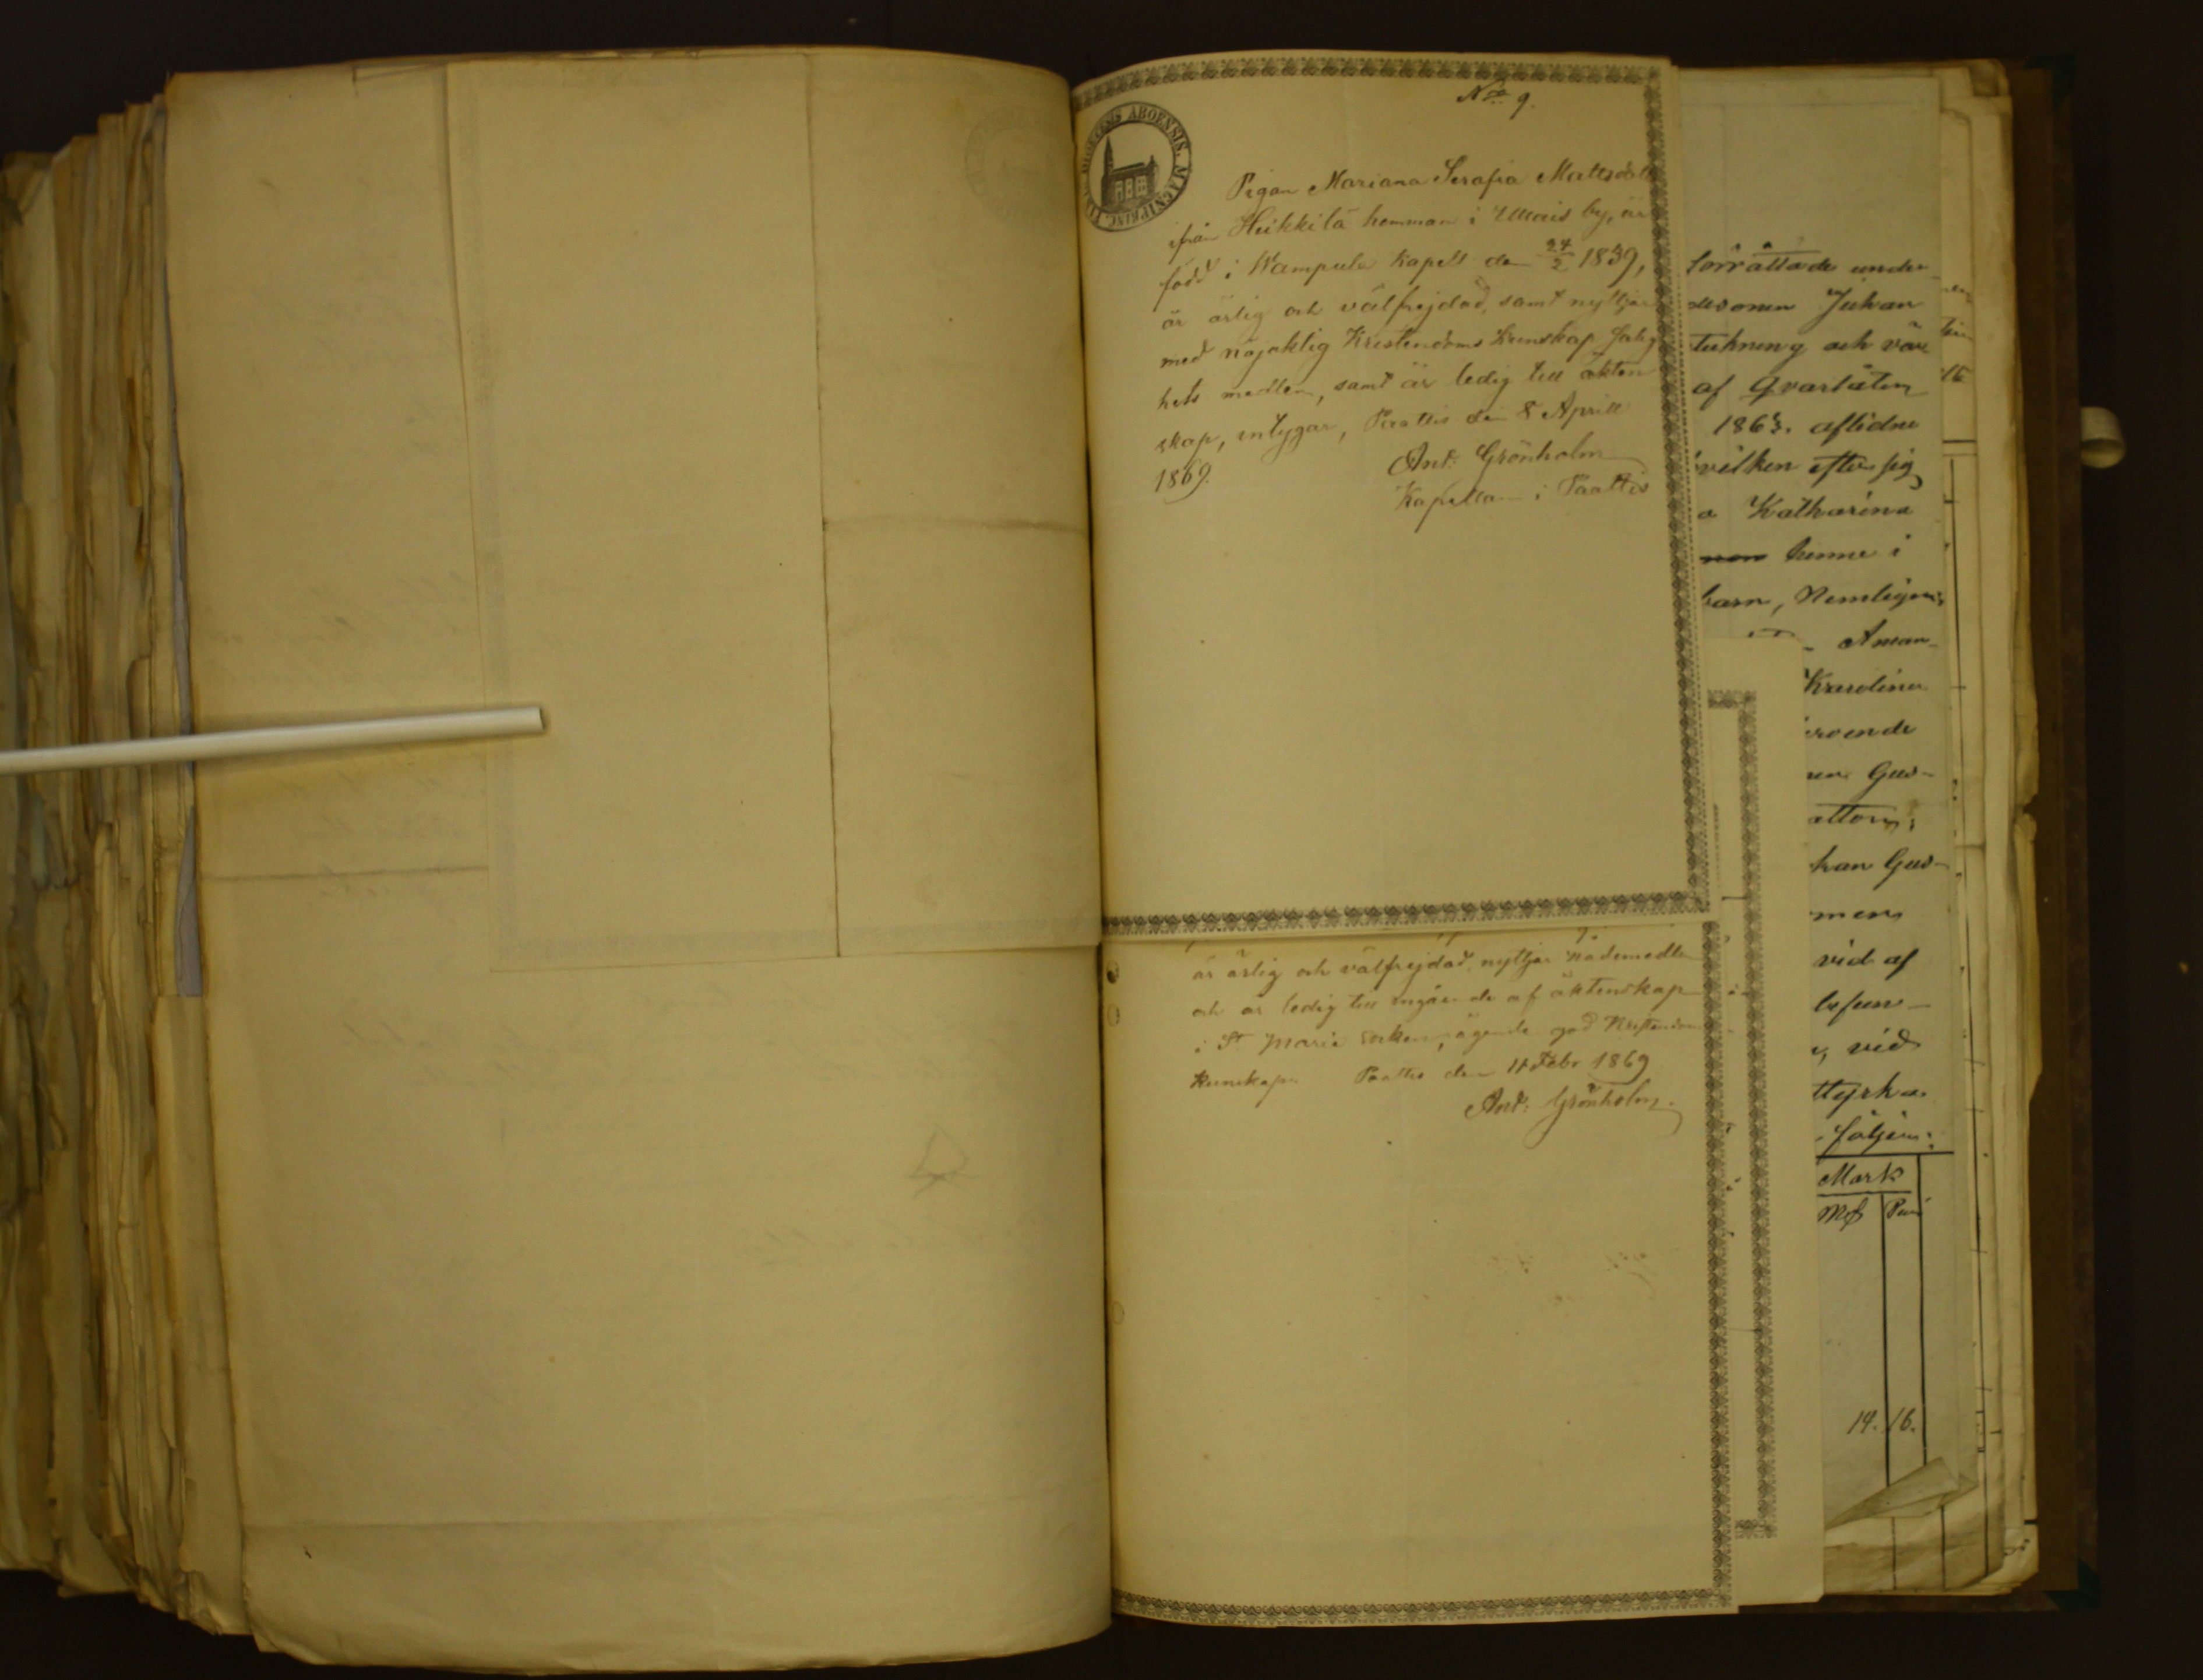 No 9.
Pigan Mariana Serafia Mattsdott
ifrån Heikkilä hemman i by, är
född i Wampula Kapell den 24/2 1839,
är ärlig och välfrejdad, samt nyttjar
med nöjaktig Kristendoms Kunskap Salig
hets medlen, samt är ledig till äkten
skap, intygar, Paattis den 8 Aprill
1869. And: Grönholm
Kapellan i Paattis
är ärlig och välfrejdad, nyttjar nådemedlen
och är ledig till ingående af äktenskap
i St Marie socken, ägande god Kristendoms
kunskap. Paattis den 11 Febr 1869
And: Grönholm.
förrättade under
Johan
och
af
1863. aflidne
hvilken efter sig
a Katharina
henne i
barn, Nemligen:
Aman-
Karolina
eroende
Gus-
han Gus-
men
vid af
befun-
, vid
styrka
följer:
Mark
Pen
14. 16.
DIOECESIS ABOENSIS. MAGNI PRINC. FINL.